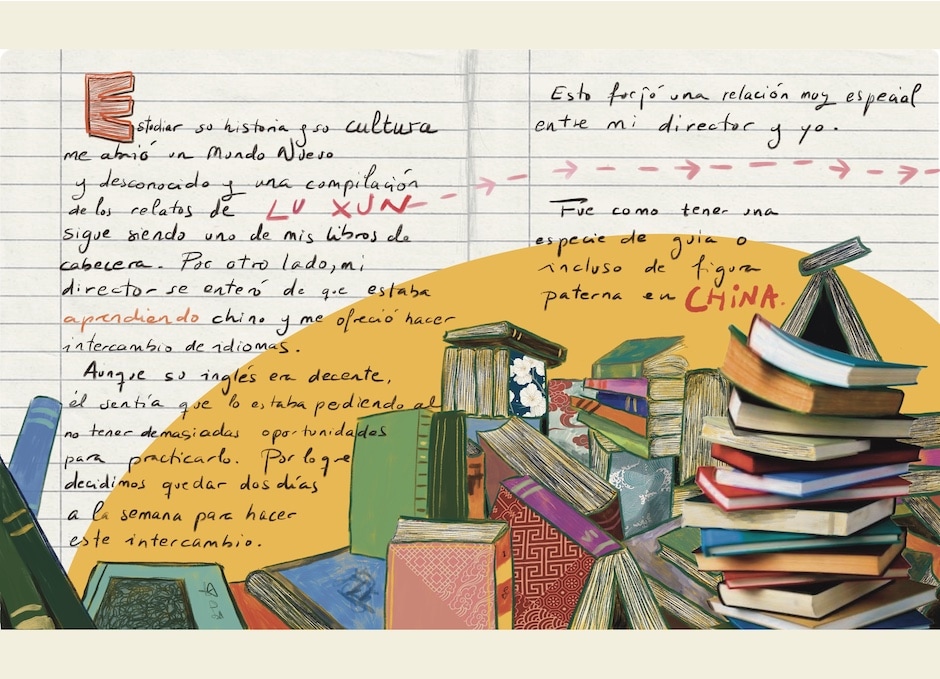 Estudiar su historia y su cultura
me abrió un Mundo Nuevo
y desconocido y una compilación
de los relatos de LU XUN
sigue siendo uno de mis libros de
cabecera. Por otro lado, mi
director se enteró de que estaba
aprendiendo chino y me ofreció hacer
intercambio de idiomas.
Aunque su inglés era decente,
él sentía que lo estaba perdiendo al
no tener demasiadas oportunidades
para practicarlo. Por lo que
decidimos quedar dos días
a la semana para hacer
este intercambio.
Esto forjó una relación muy especial
entre mi director y yo.
Fue como tener una
especie de guía o
incluso de figura
paterna en CHINA.